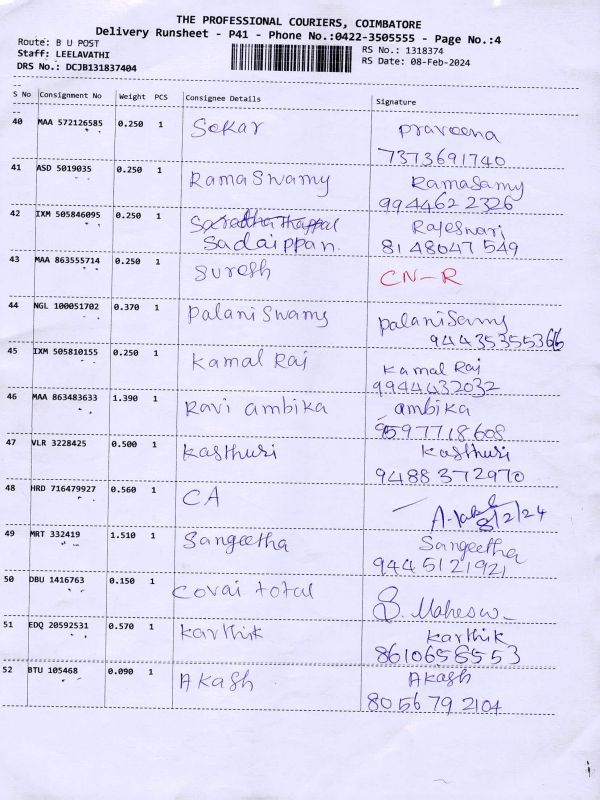 THE PROFESSIONAL COURIERS, COIMBATORE
Delivery Runsheet - P41 - Phone No.:0422-3505555 - Page No.:4
Route: B U POST
Staff: LEELAVATHI
DRS No.: DCJB131837404
RS No.: 1318374
RS Date: 08-Feb-2024
S No Consignment No Weight PCS Consignee Details Signature
40 MAA 572126585 0.250 1 Sekar Praveena
7373691740
41 ASD 5019035 0.250 1 Ramaswamy Ramasamy
994462 2326
42 IXM 505846095 0.250 1 Rajeswari
Sadaippan. 8148047549
43 MAA 863555714 0.250 1 Suresh CN-R
44 NGL 100051702 0.370 1 Palaniswamy Palanisamy
45 IXM 505810155 0.250 1 Kamal Raj Kamal Raj
9944432032
46 MAA 863483633 1.390 1 Ravi ambika ambika
9597718608
47 VLR 3228425 0.500 1 Kasthuri Kasthuri
9488372970
48 HRD 716479927 0.560 1 CA
8/2/24
49 MRT 332419 1.510 1 Sangeetha Sangeetha
9445121921
50 DBU 1416763 0.150 1 Covai total
51 EDQ 20592531 0.570 1 Karthik Karthik
8610656553
52 BTU 105468 0.090 1 Akash Akash
8056792104